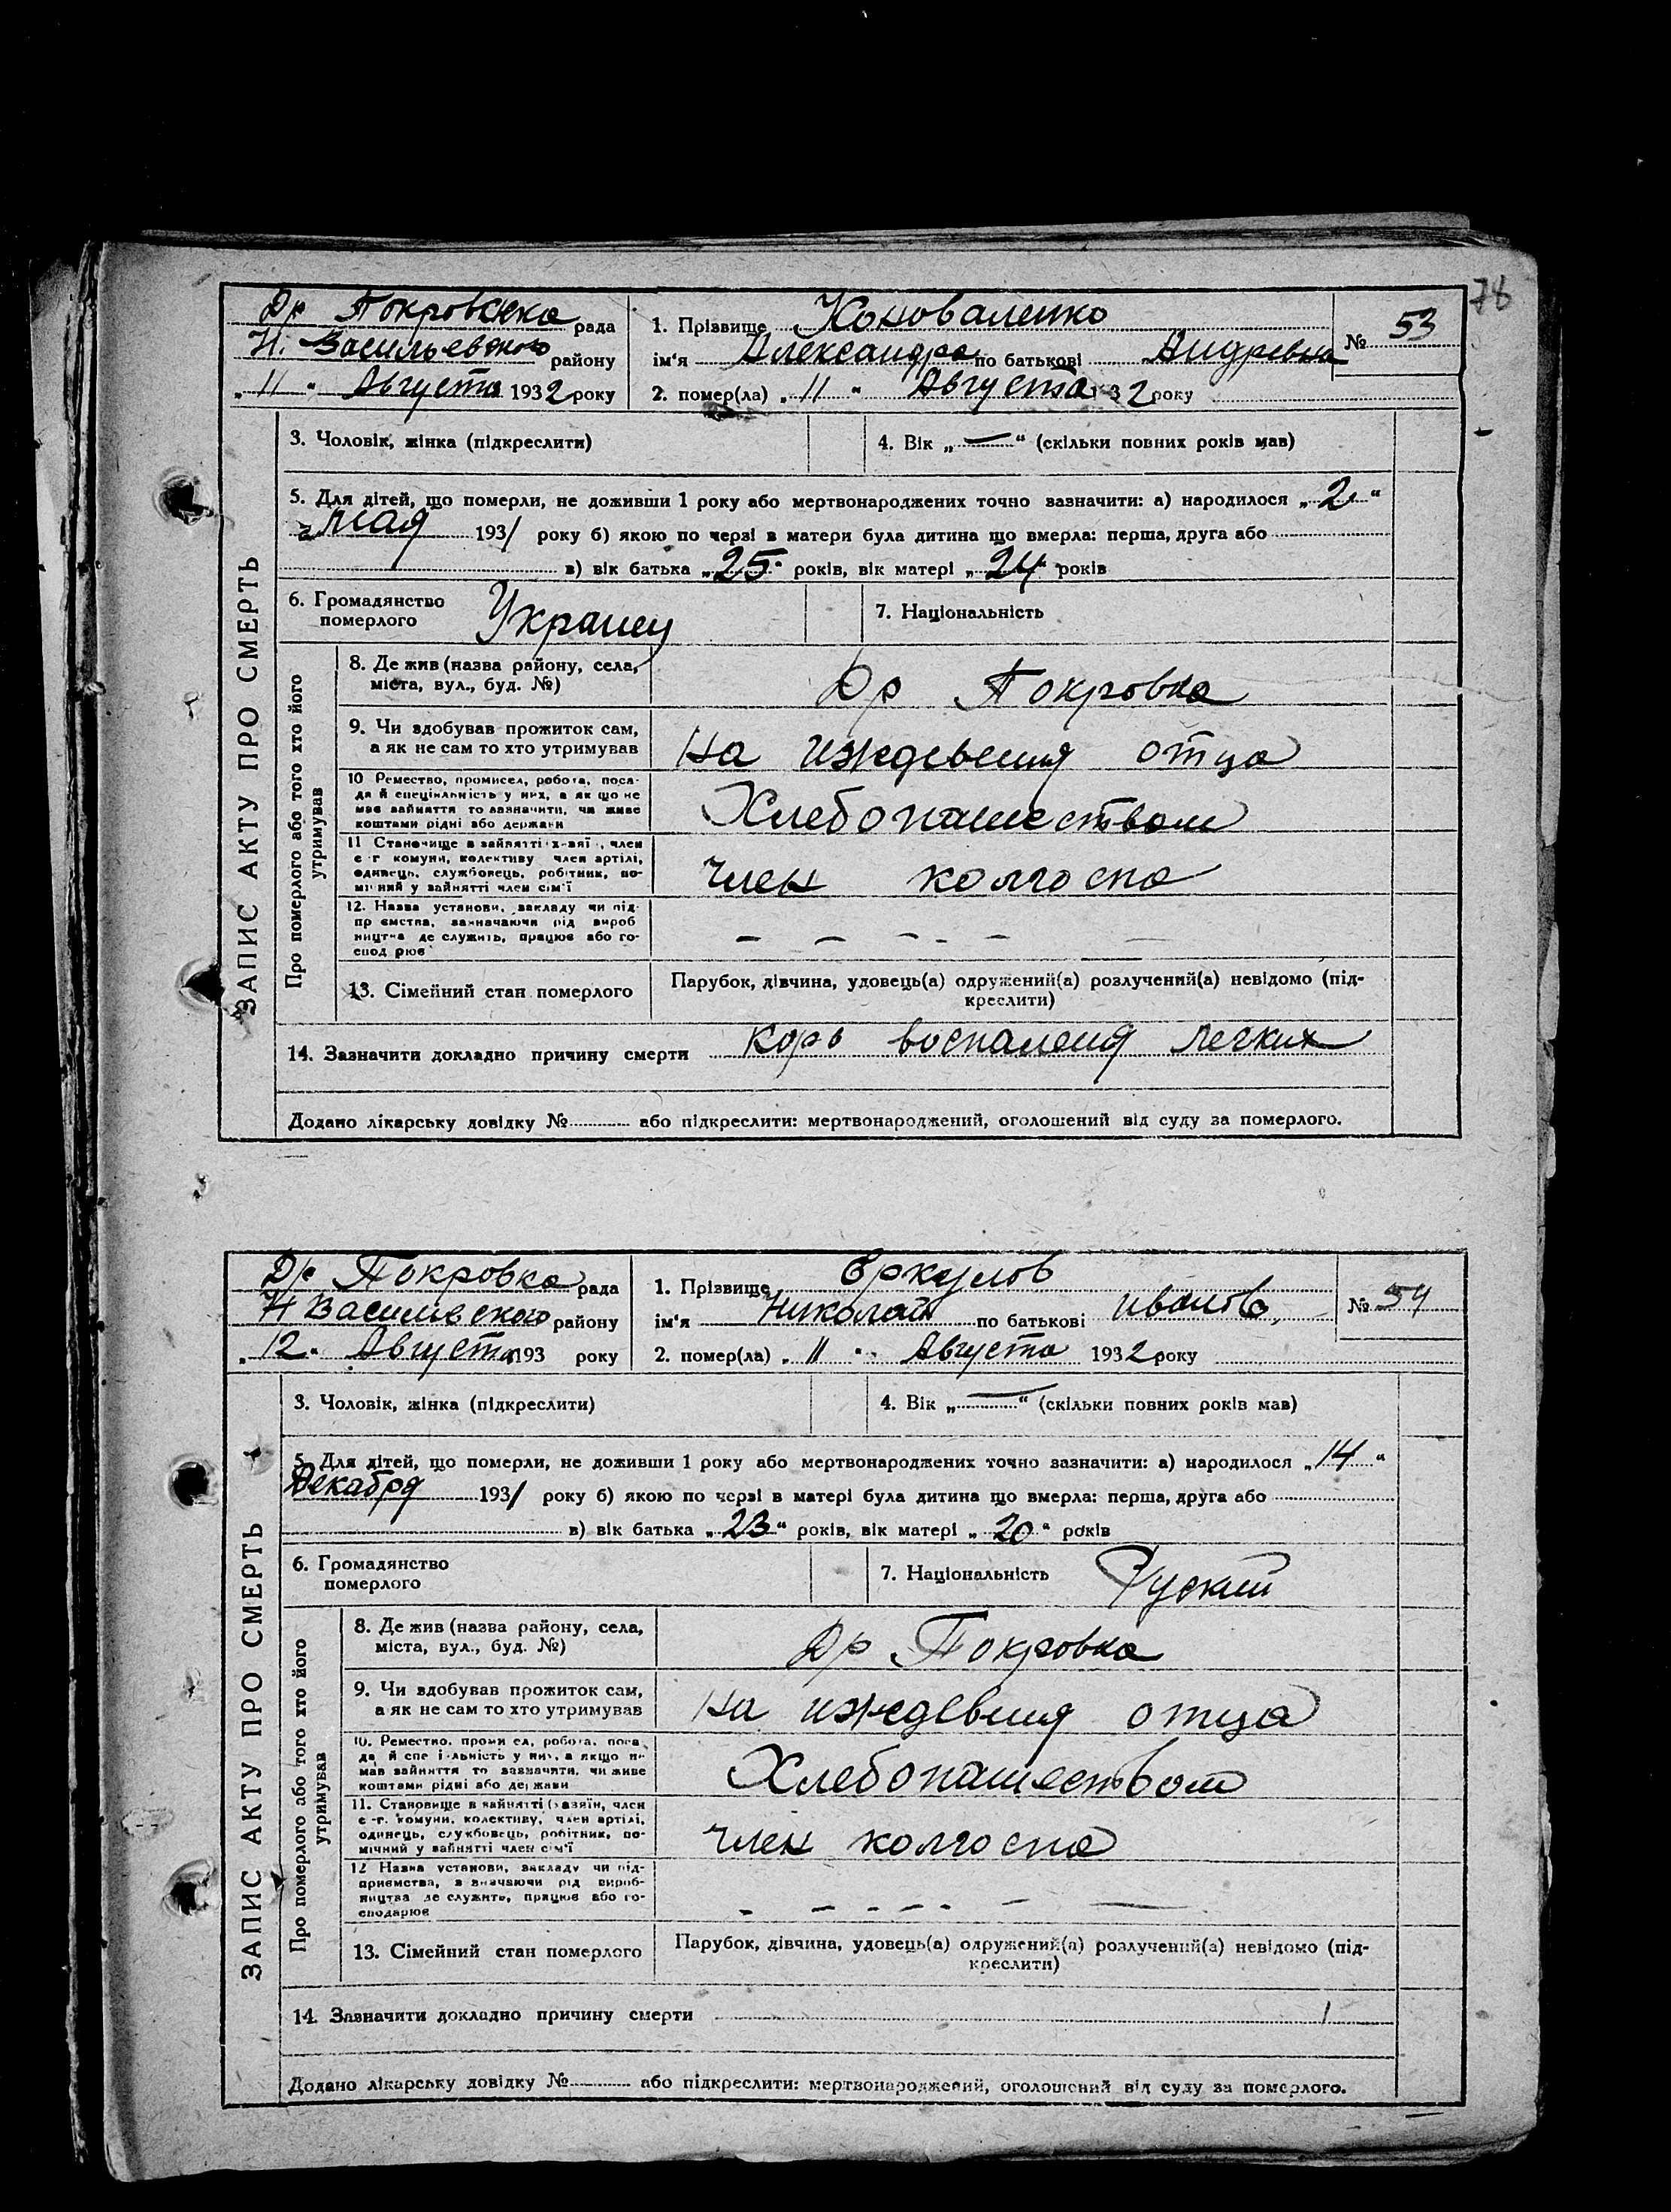 78
Др Покровска рада
Н. Васильевского району
„ 11 “ Августа 1932 року
1. Прізвище Коноваленко
ім'я Александра по батькові Андревна
2. помер(ла) „ 11 “ Августа 1932 року
№ 53
ЗАПИС АКТУ ПРО СМЕРТЬ
3. Чоловік, жінка (підкреслити)
4. Вік „ — “ (скільки повних років мав)
5. Для дітей, що померли, не доживши 1 року або мертвонароджених точно зазначити: а) народилося „ 2 “
Мая 1931 року б) якою по черзі в матери була дитина що вмерла: перша, друга або
в) вік батька „ 25 “ років, вік матері „ 24 “ років
6. Громадянство
померлого
Украиец
7. Національність
Про померлого або того хто його
утримував
8. Де жив (назва району, села,
міста, вул., буд. №)
Др Покровка
9. Чи здобував прожиток сам,
а як не сам то хто утримував
на иждевения отца
10 Ремество, промисел, робота, поса-
да й спеціяльність у них, а як що не
має зайняття то зазначити, чи живе
коштами рідні або держави
Хлебопашеством
11 Становище в зайнятті х-зяї , член
с г комуни, колективу член артілі,
одинець, службовець, робітник, по-
мічний у зайнятті член сім'ї
член колгоспа
12. Назва установи, закладу чи під-
пр ємства, зазначаючи рід вироб
ництва де служить, працює або го-
спод рює
— — — — —
13. Сімейний стан померлого
Парубок, дівчина, удовець(а) одружений(а) розлучений(а) невідомо (під-
креслити)
14. Зазначити докладно причину смерти корь воспаления легких
Додано лікарську довідку № або підкреслити: мертвонароджений, оголошений від суду за померлого.
Др Покровка рада
Н Василевского району
„ 12 “ Августа 193 року
1. Прізвище Еркулов
ім'я Николай по батькові Иванов,
2. помер(ла) „ 11 “ Августа 1932 року
№ 54
ЗАПИС АКТУ ПРО СМЕРТЬ
3. Чоловік, жінка (підкреслити)
4. Вік „ — “ (скільки повних років мав)
5. Для дітей, що померли, не доживши 1 року або мертвонароджених точно зазначити: а) народилося „ 14 “
Декабря 1931 року б) якою по черзі в матері була дитина що вмерла: перша, друга або
в) вік батька „ 23 “ років, вік матері „ 20 “ років
6. Громадянство
померлого
7. Національність Руский
Про померлого або того хто його
утримував
8. Де жив (назва району, села,
міста, вул., буд. №)
Др Покровка
9. Чи здобував прожиток сам,
а як не сам то хто утримував
на иждевения отца
10. Ремество, проми ел, робота, поса
да й спе і льність у них, а якщо н
мав зайняття то зазначити, чи живе
коштами рідні або держави
Хлебопашеством
11. Становище в зайнятті (хазяїн, член
с -г. комуни, колективу, член артілі,
одинець, службовець, робітник, по-
мічний у зайнятті член сім'ї
член колгоспа
12 Назва установи, закладу чи під-
приємства, з значаючи рід вироб-
ництва де служить, працює або го-
сподарює
— — — — —
13. Сімейний стан померлого
Парубок, дівчина, удовець(а) одружений(а) розлучений(а) невідомо (під-
креслити)
14. Зазначити докладно причину смерти
Додано лікарську довідку № або підкреслити: мертвонароджений, оголошений від суду за померлого.